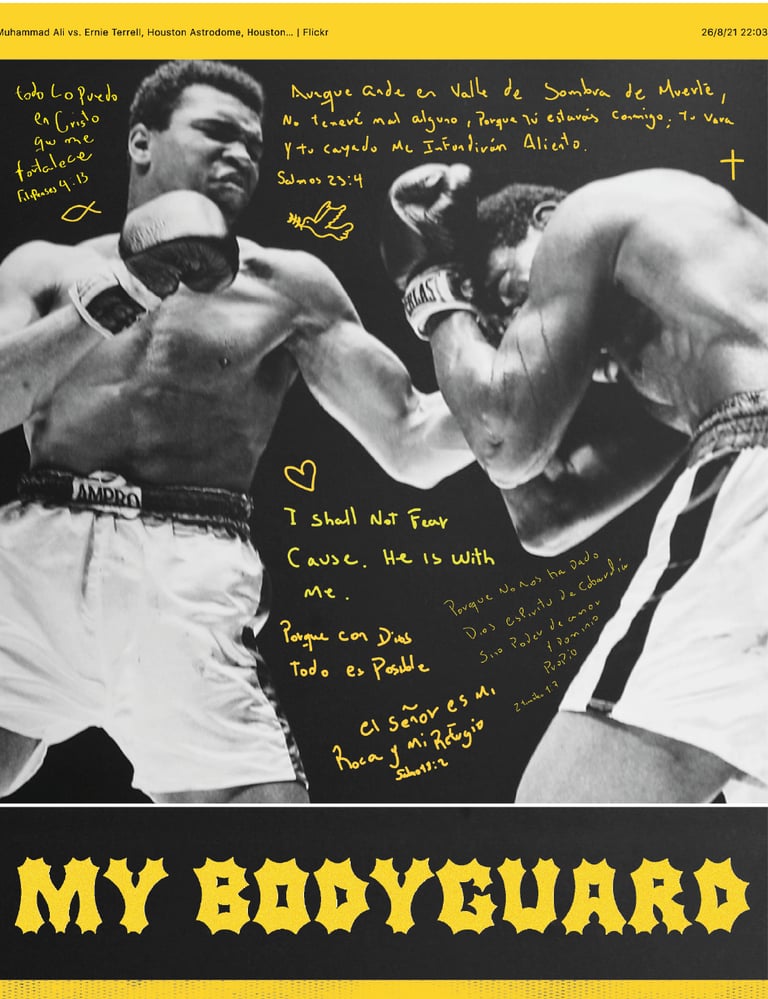 Muhammad Ali vs. Ernie Terrell, Houston Astrodome, Houston... | Flickr
26/8/21 22:03
todo Lo puedo
en Cristo
que me
fortalece
Filipenses 4:13
Aunque ande en Valle de Sombra de Muerte,
No temeré mal alguno, Porque tú estarás Conmigo; tu vara
Y tu cayado Me Infundirán Aliento.
Salmos 23:4
EVERLAST
AMPRO
I shall Not Fear
Cause. He Is With
Me.
Porque No Nos ha Dado
Dios espíritu de Cobardía
Sino Poder de amor
Y Dominio
Propio
2 Timoteo 1:7
Porque con Dios
Todo es Posible
el Señor es Mi
Roca y Mi Refugio
Salmo 18:2
MY BODYGUARD